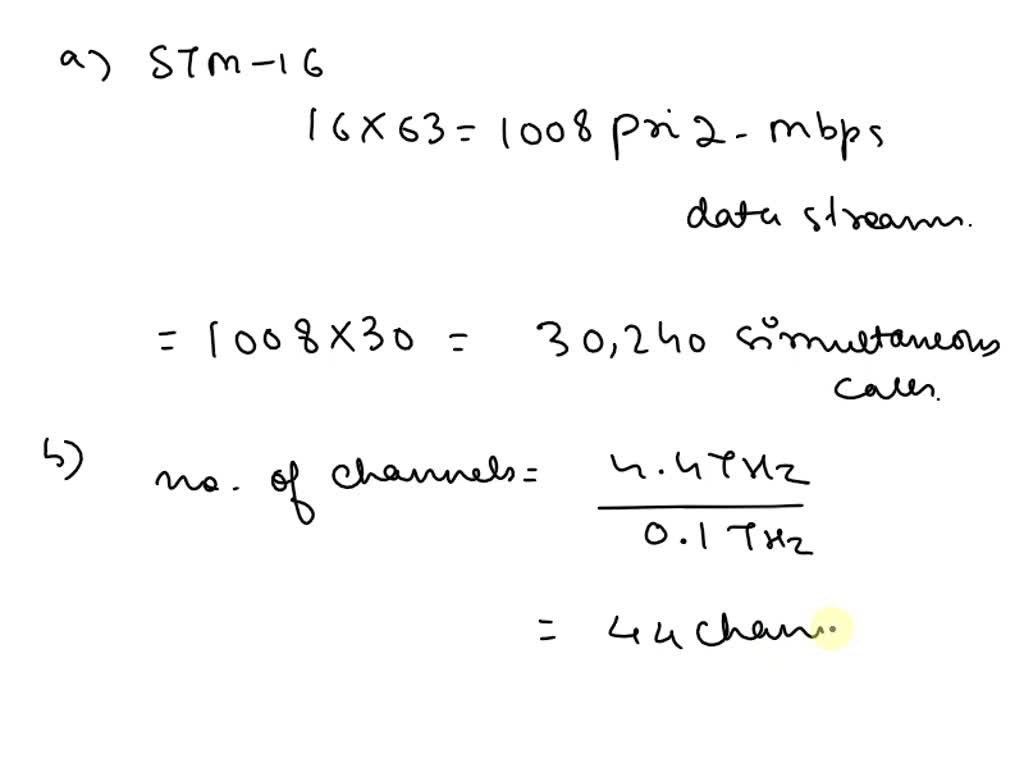 a) STM-16
16×63 = 1008 pri 2-mbps
data stream.
= 1008×30 = 30,240 simultaneous
b) no. of channels = 4.4 THz
0.1 THz
= 44 chann